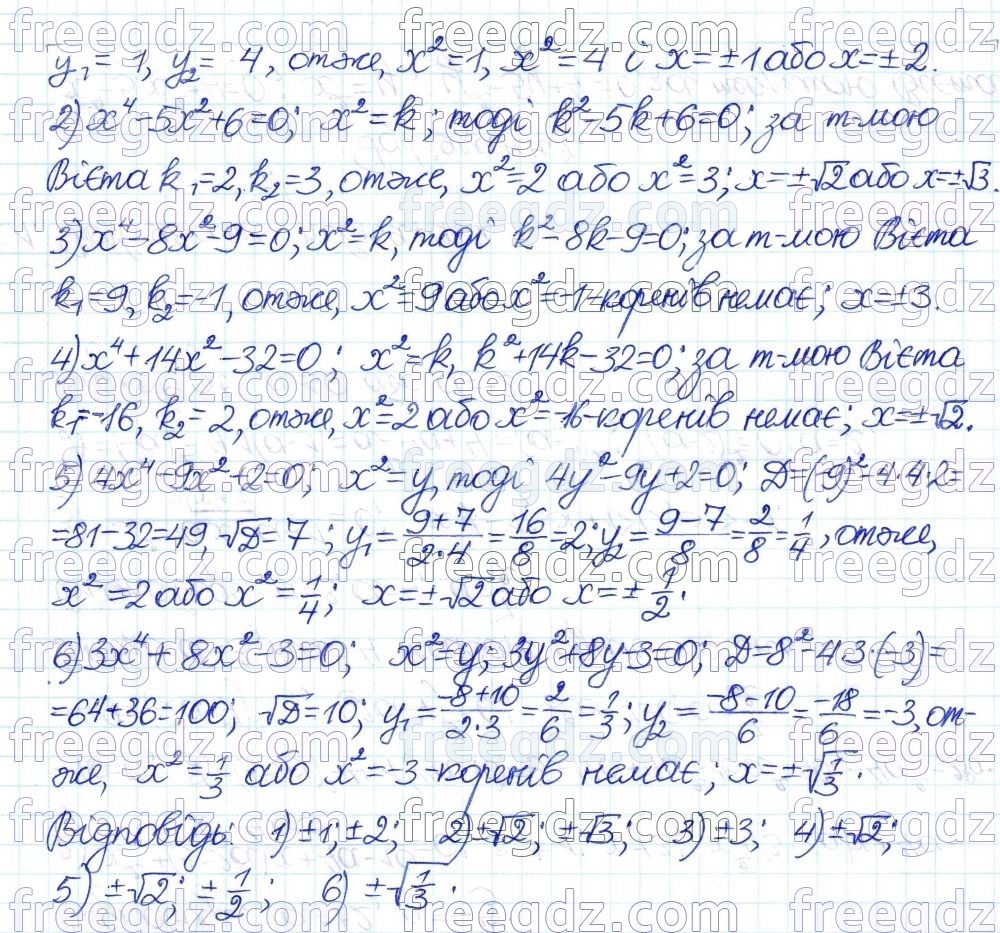 y₁ = 1, y₂ = 4, отже, x² = 1, x² = 4 і x = ±1 або x = ±2.
2) x⁴ – 5x² + 6 = 0; x² = k; тоді k² – 5k + 6 = 0; за т-мою
Вієта k₁ = 2, k₂ = 3, отже, x² = 2 або x² = 3; x = ±√2 або x = ±√3.
3) x⁴ – 8x² – 9 = 0; x² = k, тоді k² – 8k – 9 = 0; за т-мою Вієта
k₁ = 9, k₂ = –1, отже, x² = 9 або x² = –1 – коренів немає; x = ±3.
4) x⁴ + 14x² – 32 = 0; x² = k, k² + 14k – 32 = 0; за т-мою Вієта
k₁ = –16, k₂ = 2, отже, x² = 2 або x² = –16 – коренів немає; x = ±√2.
5) 4x⁴ – 9x² + 2 = 0; x² = y, тоді 4y² – 9y + 2 = 0; D = (–9)² – 4·4·2 =
= 81 – 32 = 49, √D = 7; y₁ = (9+7)/(2·4) = 16/8 = 2; y₂ = (9–7)/8 = 2/8 = 1/4, отже,
x² = 2 або x² = 1/4; x = ±√2 або x = ±1/2.
6) 3x⁴ + 8x² – 3 = 0; x² = y; 3y² + 8y – 3 = 0; D = 8² – 4·3·(–3) =
= 64 + 36 = 100; √D = 10; y₁ = (–8+10)/(2·3) = 2/6 = 1/3; y₂ = (–8–10)/6 = –18/6 = –3, от-
же, x² = 1/3 або x² = –3 – коренів немає; x = ±√(1/3).
Відповідь: 1) ±1; ±2; 2) ±√2; ±√3; 3) ±3; 4) ±√2;
5) ±√2; ±1/2; 6) ±√(1/3).
freegdz.com